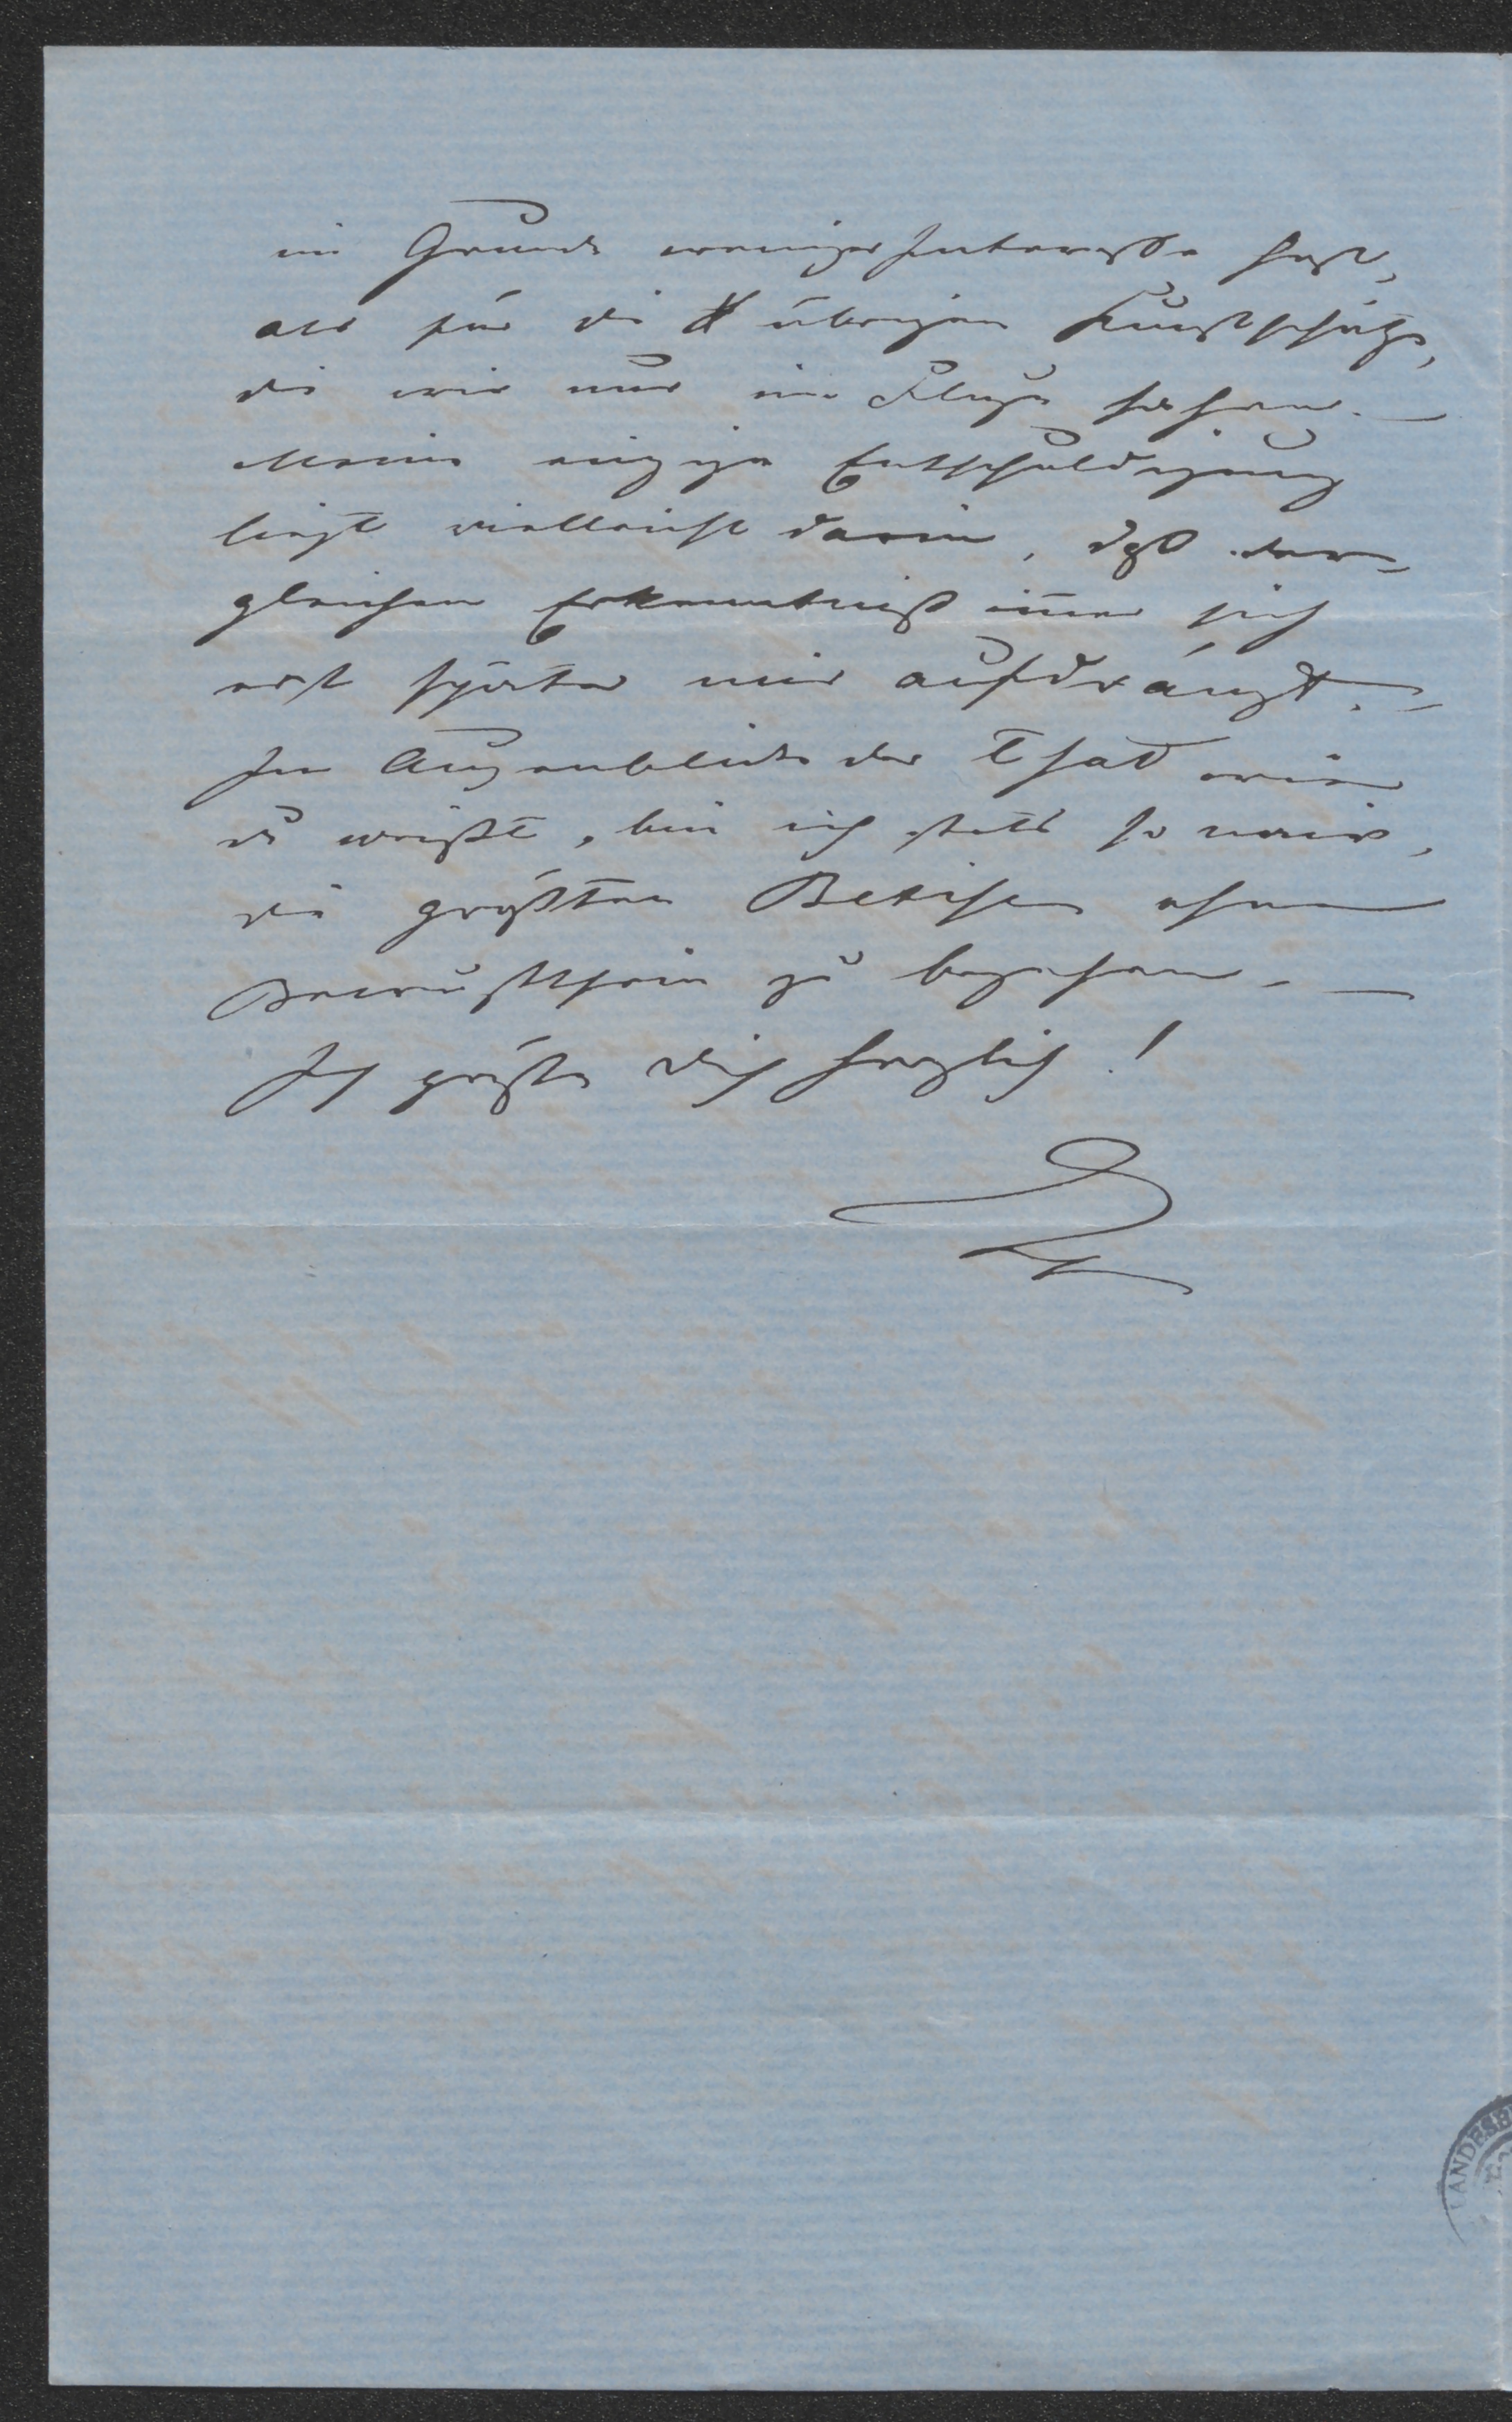 im Grunde weniger Interesse hast,
als für die übrigen Kunstschätze,
die wir nur im Fluge sahen. —
Meine einzige Entschuldigung
liegt vielleicht darin, daß der-
gleichen Erkenntniß immer sich
erst später mir aufdrängt. —
Im Augenblicke der That wie
du weißt, bin ich stets so naiv,
die größten Betisen ohne
Bewußtsein zu begehen. —
Ich grüße dich herzlich!
LANDESB